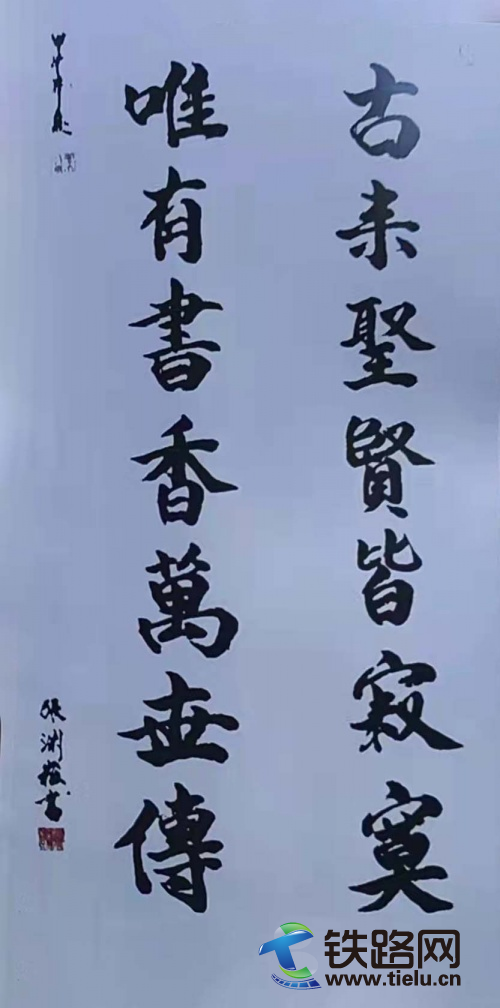 古来聖賢皆寂寞
唯有書香萬世傳
張淵
書
铁路网
www.tielu.cn